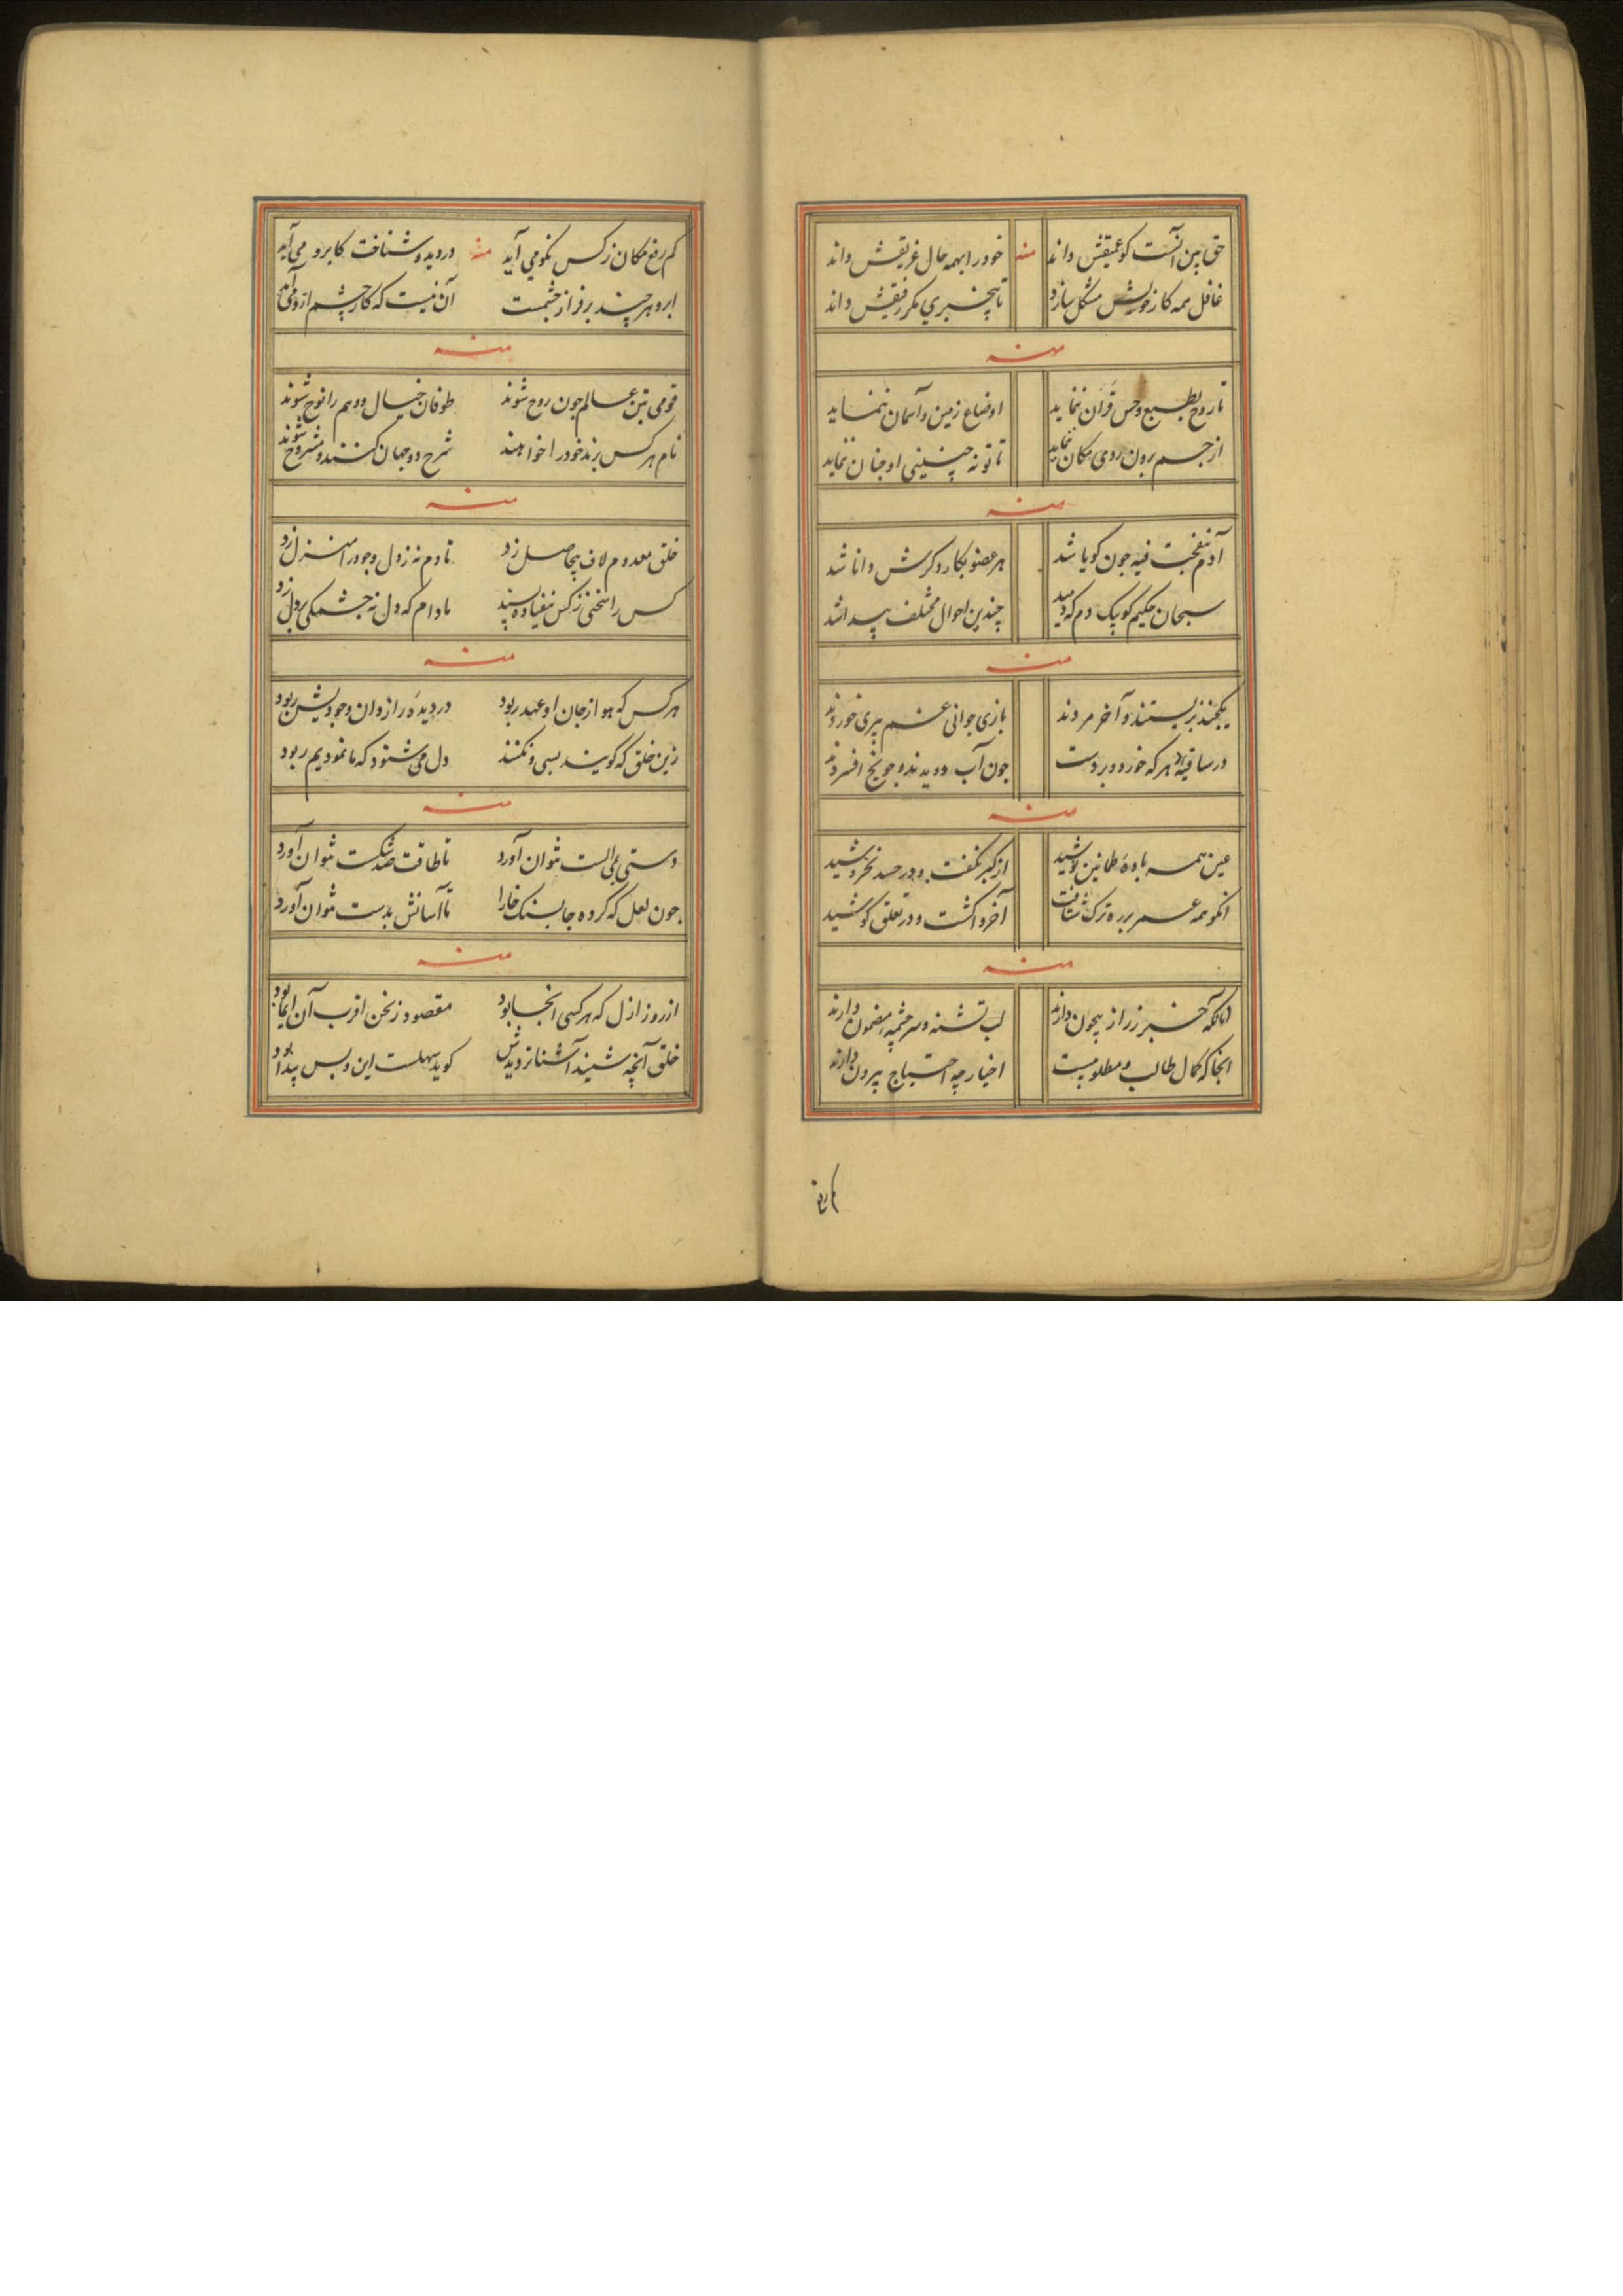 حق بین آنست کو عمیقش داند منه خود را بهمه حال غریقش داند
غافل همه کار خویش مشکل سازد تا بیخبری مکر رفیقش داند
منه
تا روح بطبع و حس قرآن ننماید اوضاع زمین و آسمان ننماید
از جسم برون روی مکان ننماید تا تو نه چنینی او چنان ننماید
منه
آدم بنفخت فیه چون کویا شد هر عضو بکار و کرش دانا شد
سبحان حکیم کو بیک دم که دمید چندین احوال مختلف پیدا شد
منه
یکچند بزیستند و آخر مردند بازی جوانی غم پیری خوردند
در ساقیه هر که خورد و برد دست چون آب دویدند و چو یخ افسردند
منه
عین همه باده طمانین نوشید از کبر نکفت و در حسد نخروشید
انکو همه عمر بر ره ترک شتافت آخر واکشت و در تعلق کوشید
منه
آنانکه خبر ز راز بیچون دارند لب تشنه و سرچشمه مضمون دارند
انجا که کمال طالب و مطلوبیست اخیار چه احتیاج بیرون دارند
کم رفع
کم رفع مکان ز کس نکو می آید منه در وید و شناخت کابرو می آید
ابرو هر چند بر فراز چشمست آن نیست که کار چشم ازو می آید
منه
قومی بتن عالم چون روح شوند طوفان خیال و وهم را نوح شوند
نام هر کس برند خود را خواهند شرح دو جهان کنند و مشروح شوند
منه
خلق معدوم لاف بیحاصل زد تا دم نه ز دل وجود را منزل زد
کس را سخنی ز کس نیفتاده پسند مادام که دل نه چشمکی بر دل زد
منه
هر کس که هو از جان او عهد ربود در دیده راز دان وجودیش ربود
زین خلق که کویند بسی و نکنند دل می شنود که ما نمودیم ربود
منه
دستی بمی الست نتوان آورد تا طاقت صد شکست نتوان آورد
چون لعل که کرده جا بسنک خارا تا آسانش بدست نتوان آورد
منه
از روز ازل که هر کسی انجا بود مقصود ز نحن اقرب آن ایما بود
خلق آنچه شنید آشناتر دیدش کوید سهلست این و بس پیدا بود